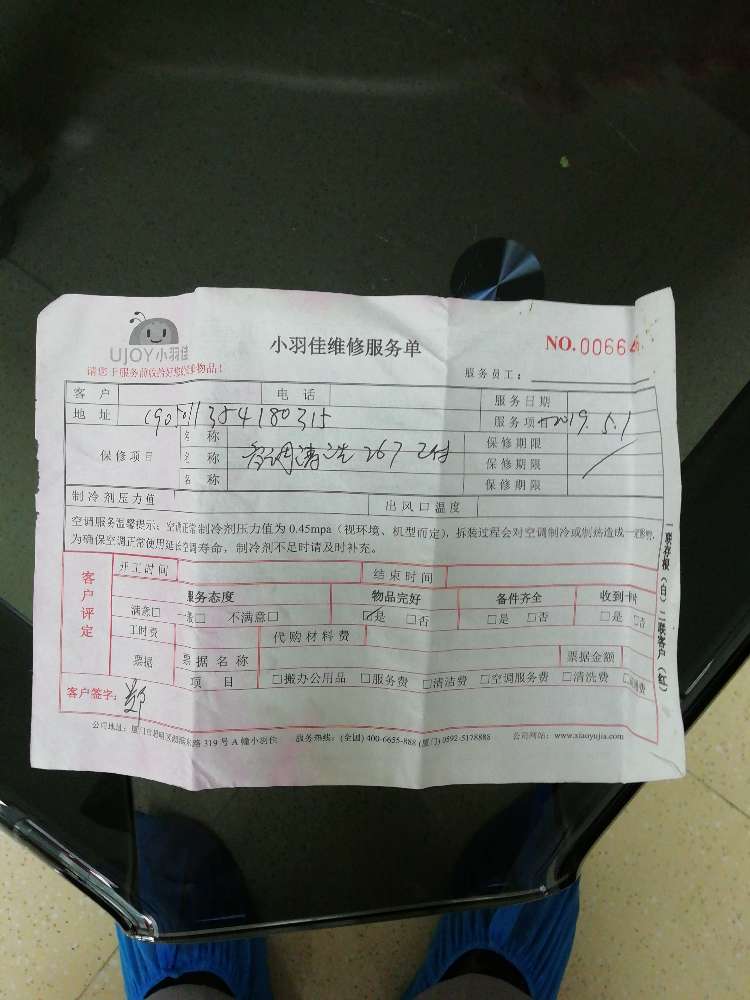 UJOY小羽佳
小羽佳维修服务单
NO. 00664
请您于服务前收拾好您的贵重物品!
服务员工:
客户 电话 服务日期
地址 1905011354180315 服务项目 2019.5.1
保修项目 名称 保修期限
名称 空调清洗 267 已付 保修期限
名称 保修期限
制冷剂压力值 出风口温度
空调服务温馨提示:空调正常制冷剂压力值为0.45mpa(视环境、机型而定),拆装过程会对空调制冷或制热造成一定影响,
为确保空调正常使用延长空调寿命,制冷剂不足时请及时补充。
客户评定
开工时间 结束时间
服务态度 物品完好 备件齐全 收到卡
满意□ 一般□ 不满意□ ☑是 □否 □是 □否 □是 □否
工时费 代购材料费
票据 票据名称 票据金额
项目 □搬办公用品 □服务费 □清洁费 □空调服务费 □清洗费
客户签字: 郑
公司地址: 319号A幢小羽佳 服务热线:(全国)400-6655-888 (厦门)0592-5178888 公司网站:www.xiaoyujia.com
一联存根(白) 二联客户(红)